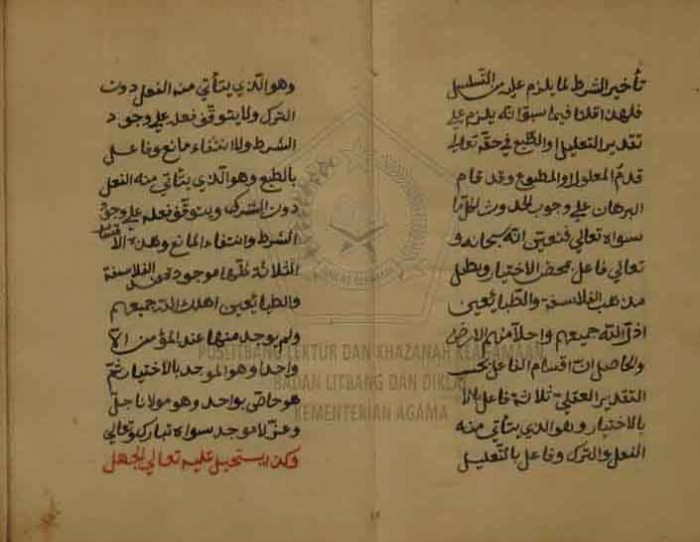 تأخير الشرط لما يلزم عليه من التسلسل
فلهذا قلنا فيما سبق انه يلزم على
تقدير التعليل او الطبع في حقه تعالى
قدم المعلول او المطبوع وقد قام
البرهان على وجوب الحدوث لكل ما
سواه تعالى فتعين انه سبحانه و
تعالى فاعل بمحض الاختيار وبطل
مذهب الفلاسفة والطبائعين
اذل الله جميعهم واخلا منهم الارض
والحاصل ان اقسام الفاعل بحسب
التقدير العقلي ثلاثة فاعل بالا
بالاختيار وهو الذي يتأتي منه
الفعل والترك وفاعل بالتعليل
وهو الذي يتأتي منه الفعل دون
الترك ولا يتوقف فعله على وجود
الشرط ولا انتفاء مانع وفاعل
بالطبع وهو الذي يتأتي منه الفعل
دون الترك ويتوقف فعله على وجود
الشرط وانتفاء المانع وهذه الاقسام
الثلاثة كلها موجودة عند الفلاسفة
والطبائعين اهلك الله جميعهم
ولم يوجد منها عند المؤمن الا
واحد وهو الموجد بالاختيار ثم
هو خاص بواحد وهو مولانا جل
وعز لا موجد سواه تبارك وتعالى
وكذا يستحيل عليه تعالى الجهل
PUSLITBANG LEKTUR DAN KHAZANAH KEAGAMAAN
BADAN LITBANG DAN DIKLAT
KEMENTERIAN AGAMA